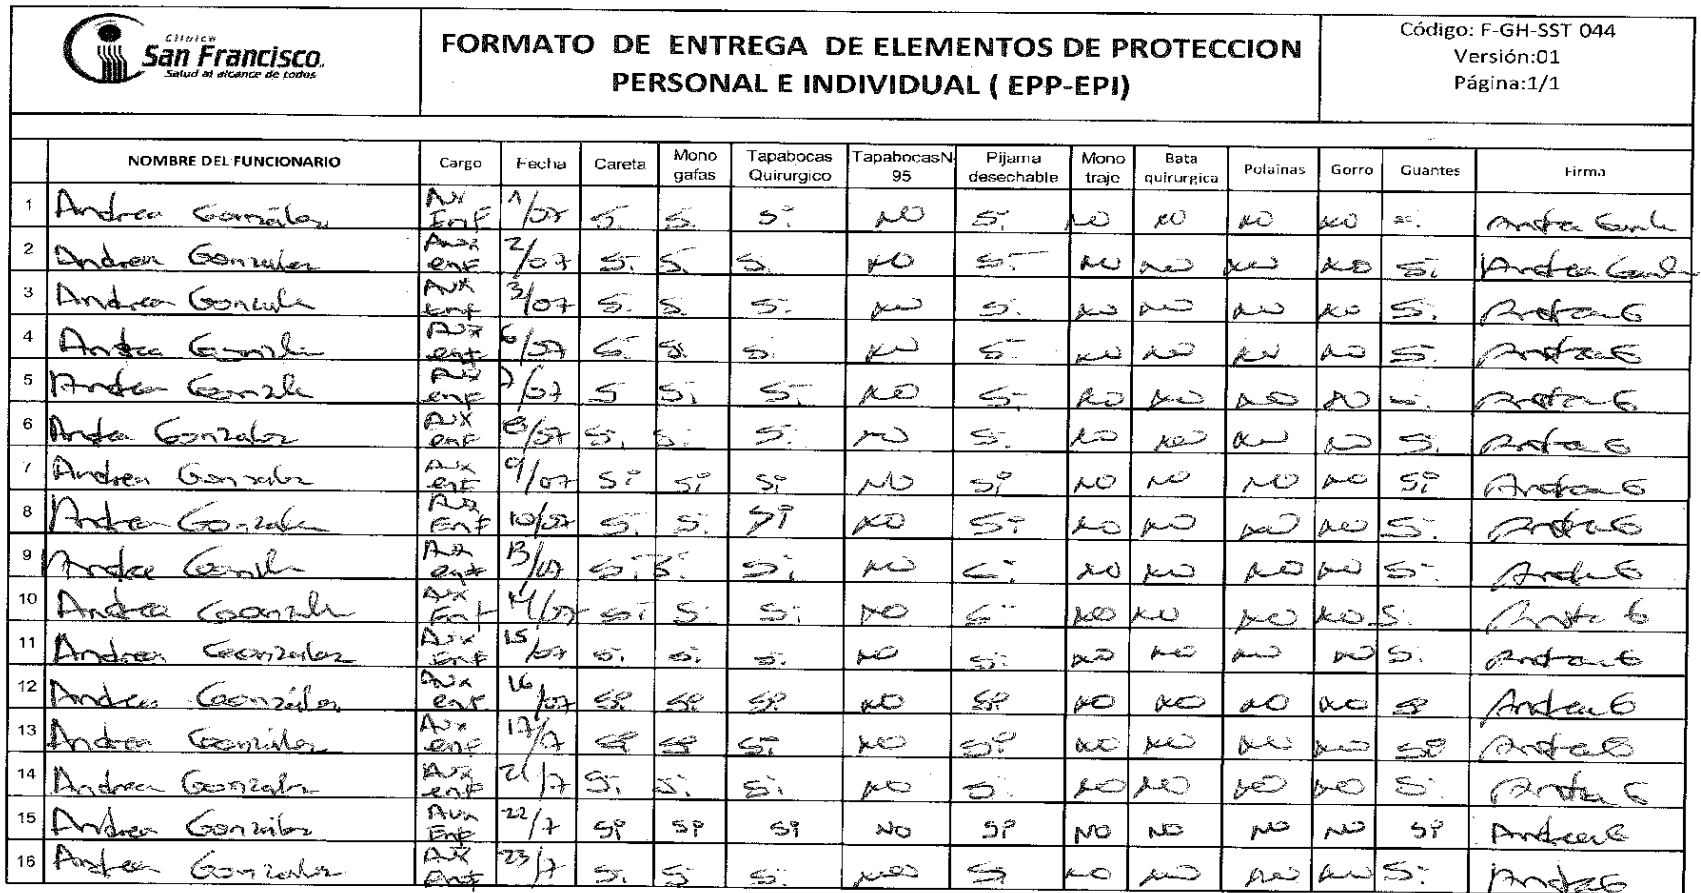 Clínica
San Francisco.
Salud al alcance de todos
FORMATO DE ENTREGA DE ELEMENTOS DE PROTECCION
PERSONAL E INDIVIDUAL ( EPP-EPI)
Código: F-GH-SST 044
Versión:01
Página:1/1
NOMBRE DEL FUNCIONARIO Cargo Fecha Careta Mono gafas Tapabocas Quirurgico TapabocasN 95 Pijama desechable Mono traje Bata quirurgica Polainas Gorro Guantes Firma
1 Andrea González Aux Enf 1/07 Si Si Si NO Si NO NO NO NO Si Andrea
2 Andrea Gonzalez Aux enf 2/07 Si Si Si NO Si NO NO NO NO Si Andrea
3 Andrea Gonzalez Aux Enf 3/07 Si Si Si NO Si NO NO NO NO Si Andrea G
4 Andrea Gonzalez Aux enf 6/07 Si Si Si NO Si NO NO NO NO Si Andrea G
5 Andrea Gonzalez Aux enf 7/07 Si Si Si NO Si NO NO NO NO Si Andrea G
6 Andrea Gonzalez Aux enf 8/07 Si Si Si NO Si NO NO NO NO Si Andrea G
7 Andrea Gonzalez Aux enf 9/07 Si Si Si NO Si NO NO NO NO Si Andrea G
8 Andrea Gonzalez Aux Enf 10/07 Si Si Si NO Si NO NO NO NO Si Andrea G
9 Andrea Gonzalez Aux enf 13/07 Si Si Si NO Si NO NO NO NO Si Andrea G
10 Andrea Gonzalez Aux Enf 14/07 Si Si Si NO Si NO NO NO NO Si Andrea G
11 Andrea Gonzalez Aux Enf 15/07 Si Si Si NO Si NO NO NO NO Si Andrea G
12 Andrea González Aux enf 16/07 Si Si Si NO Si NO NO NO NO Si Andrea G
13 Andrea González Aux enf 17/7 Si Si Si NO Si NO NO NO NO Si Andrea G
14 Andrea Gonzalez Aux enf 21/7 Si Si Si NO Si NO NO NO NO Si Andrea G
15 Andrea Gonzalez Aux Enf 22/7 Si Si Si NO Si NO NO NO NO Si Andrea G
16 Andrea Gonzalez Aux Enf 23/7 Si Si Si NO Si NO NO NO NO Si Andrea G